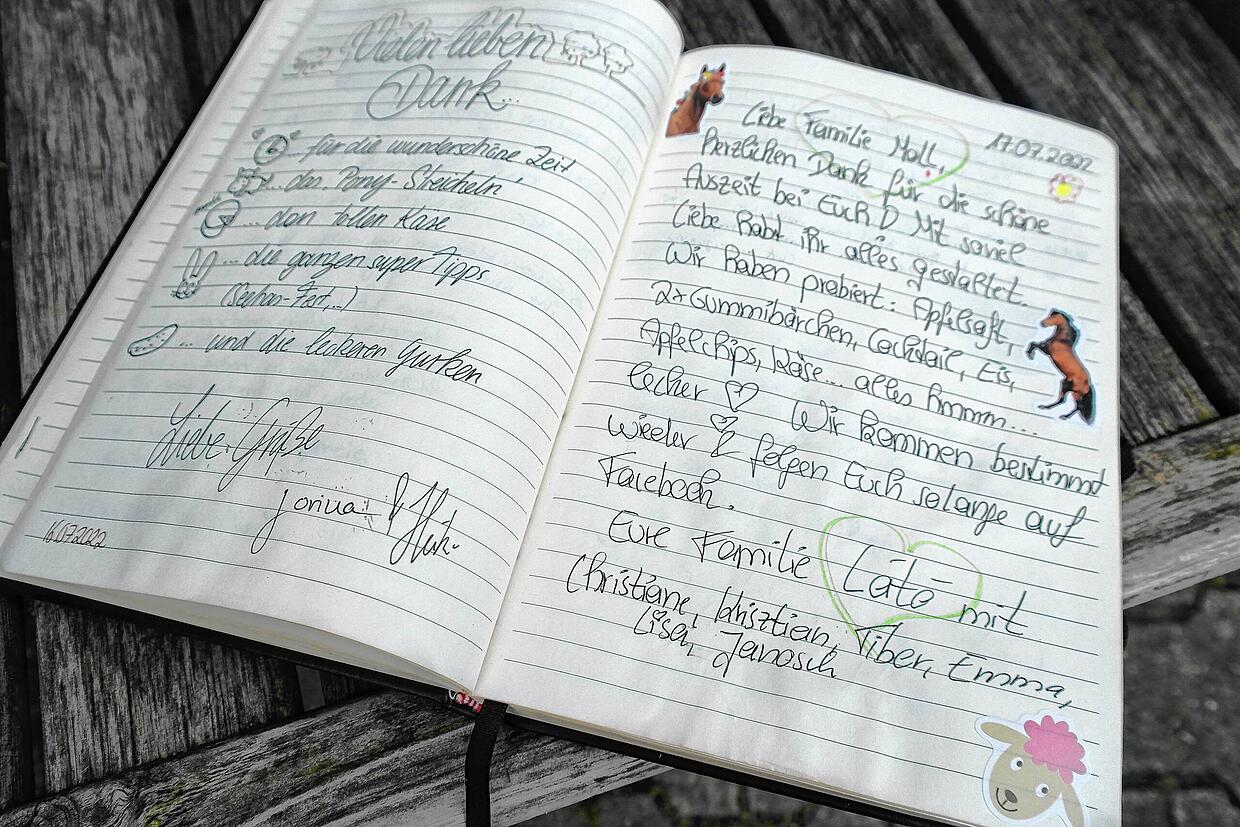 Vielen lieben
Dank...
... für die wunderschöne Zeit
... das Pony-Streicheln
... den tollen Käse
... die ganzen super Tipps
... und die leckeren Gurken
Liebe Grüße
16.07.2022
17.07.2022
Liebe Familie Moll,
Herzlichen Dank für die schöne
Auszeit bei Euch Mit soviel
Liebe habt ihr alles gestaltet.
Wir haben probiert: Apfelsaft,
2x Gummibärchen, Cocktail, Eis,
Apfelchips, Käse... alles hmmm...
lecker ♡ Wir kommen bestimmt
wieder & folgen Euch solange auf
Facebook.
Eure Familie Látó mit
Christiane, Krisztian, Tibor, Emma,
Lisa, Janosch